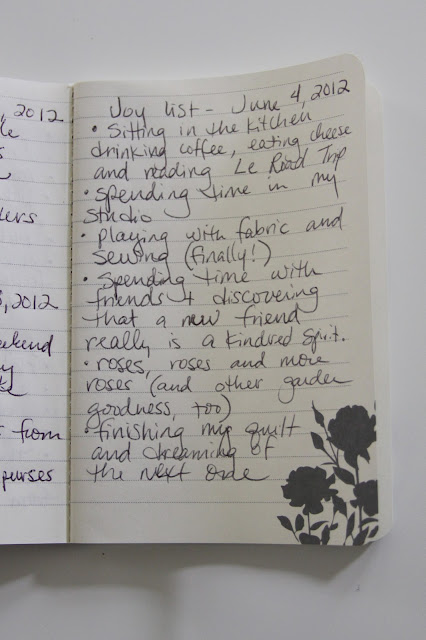 , 2012
Joy list - June 4, 2012
• Sitting in the kitchen
drinking coffee, eating cheese
and reading Le Road Trip
• spending time in my
studio
• playing with fabric and
sewing (finally!)
• Spending time with
friends + discovering
that a new friend
really is a kindred spirit.
• roses, roses and more
roses (and other garden
goodness, too)
• finishing my quilt
and dreaming of
the next one
, 2012
from
purses